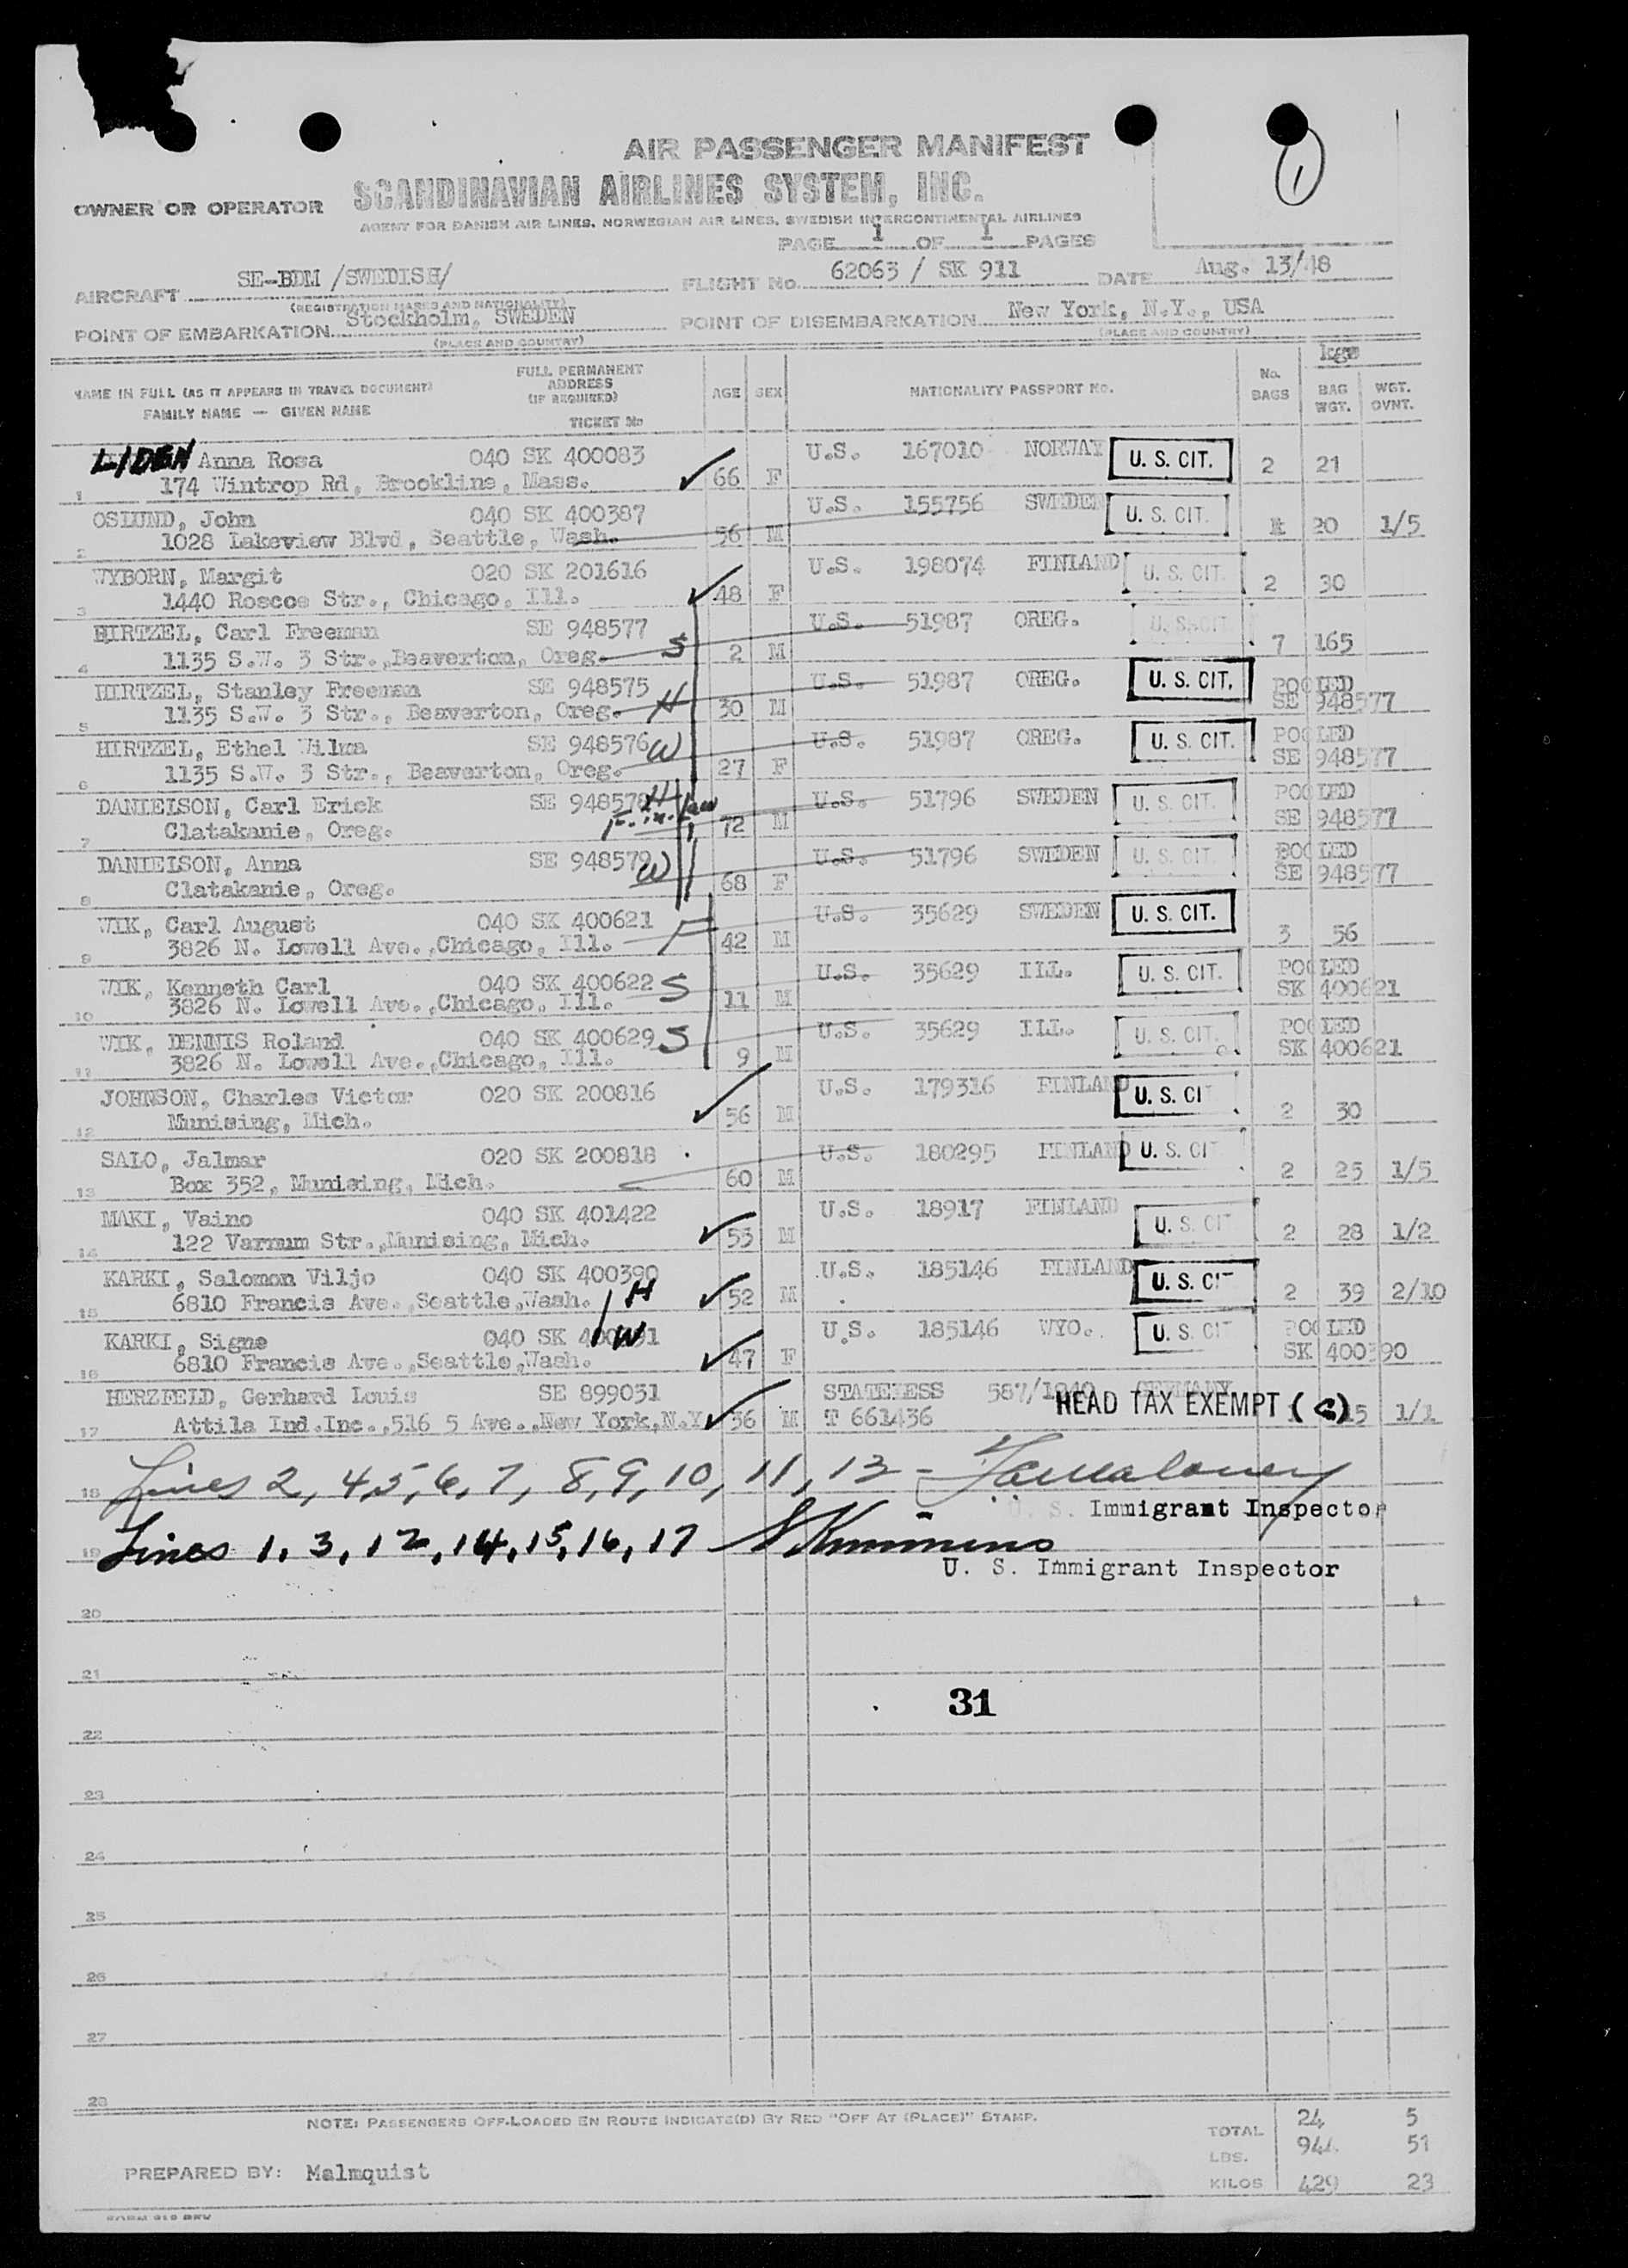 1
AIR PASSENGER MANIFEST
OWNER OR OPERATOR SCANDINAVIAN AIRLINES SYSTEM, INC.
AGENT FOR DANISH AIR LINES, NORWEGIAN AIR LINES, SWEDISH INTERCONTINENTAL AIRLINES
PAGE 1 OF 1 PAGES
AIRCRAFT SE-BDM /SWEDISH/ FLIGHT No. 62063 / SK 911 DATE Aug. 13/48
(REGISTRATION MARKS AND NATIONALITY)
POINT OF EMBARKATION Stockholm, SWEDEN POINT OF DISEMBARKATION New York, N.Y., USA
(PLACE AND COUNTRY) (PLACE AND COUNTRY)
kgs
NAME IN FULL (AS IT APPEARS IN TRAVEL DOCUMENT) FULL PERMANENT ADDRESS (IF REQUIRED) AGE SEX NATIONALITY PASSPORT No. No. BAGS BAG WGT. WGT. OVNT.
FAMILY NAME — GIVEN NAME TICKET No
LIDEN Anna Rosa 040 SK 400083 U.S. 167010 NORWAY U. S. CIT. 2 21
1 174 Wintrop Rd, Brookline, Mass. 66 F
OSLUND, John 040 SK 400387 U.S. 155756 SWEDEN U. S. CIT. 20 1/5
2 1028 Lakeview Blvd, Seattle, Wash. 56 M
WYBORN, Margit 020 SK 201616 U.S. 198074 FINLAND U. S. CIT. 2 30
3 1440 Roscoe Str., Chicago, Ill. 48 F
HIRTZEL, Carl Freeman SE 948577 U.S. 51987 OREG. U. S. CIT. 7 165
4 1135 S.W. 3 Str., Beaverton, Oreg. S 2 M
HIRTZEL, Stanley Freeman SE 948575 U.S. 51987 OREG. U. S. CIT. POOLED
5 1135 S.W. 3 Str., Beaverton, Oreg. H 30 M SE 948577
HIRTZEL, Ethel Wilma SE 948576 W U.S. 51987 OREG. U. S. CIT. POOLED
6 1135 S.W. 3 Str., Beaverton, Oreg. 27 F SE 948577
DANIELSON, Carl Erick SE 948578 H U.S. 51796 SWEDEN U. S. CIT. POOLED
7 Clatakanie, Oreg. F. in. law 72 M SE 948577
DANIELSON, Anna SE 948579 W U.S. 51796 SWEDEN U. S. CIT. POOLED
8 Clatakanie, Oreg. 68 F SE 948577
WIK, Carl August 040 SK 400621 U.S. 35629 SWEDEN U. S. CIT. 3 56
9 3826 N. Lowell Ave., Chicago, Ill. F 42 M
WIK, Kenneth Carl 040 SK 400622 S U.S. 35629 ILL. U. S. CIT. POOLED
10 3826 N. Lowell Ave., Chicago, Ill. 11 M SK 400621
WIK, DENNIS Roland 040 SK 400629 S U.S. 35629 ILL. U. S. CIT. POOLED
11 3826 N. Lowell Ave., Chicago, Ill. 9 M SK 400621
JOHNSON, Charles Victor 020 SK 200816 U.S. 179316 FINLAND U. S. CI 2 30
12 Munising, Mich. 56 M
SALO, Jalmar 020 SK 200818 U.S. 180295 FINLAND U. S. CIT 2 25 1/5
13 Box 352, Munising, Mich. 60 M
MAKI, Vaino 040 SK 401422 U.S. 18917 FINLAND U. S. CIT 2 28 1/2
14 122 Varnum Str., Munising, Mich. 53 M
KARKI, Salomon Viljo 040 SK 400390 U.S. 185146 FINLAND U. S. CIT 2 39 2/10
15 6810 Francis Ave., Seattle, Wash. H 52 M
KARKI, Signe 040 SK 400391 W U.S. 185146 WYO. U. S. CIT POOLED
16 6810 Francis Ave., Seattle, Wash. 47 F SK 400390
HERZFELD, Gerhard Louis SE 899031 STATELESS 587/1940 GERMANY
17 Attila Ind.Inc., 516 5 Ave., New York, N.Y. 36 M T 661436 HEAD TAX EXEMPT 15 1/1
18 Lines 2, 4, 5, 6, 7, 8, 9, 10, 11, 13 -
U. S. Immigrant Inspector
19 Lines 1, 3, 12, 14, 15, 16, 17
U. S. Immigrant Inspector
20
21
31
22
23
24
25
26
27
28
NOTE: PASSENGERS OFF-LOADED EN ROUTE INDICATE(D) BY RED "OFF AT (PLACE)" STAMP.
TOTAL 24 5
LBS. 944 51
PREPARED BY: Malmquist KILOS 429 23